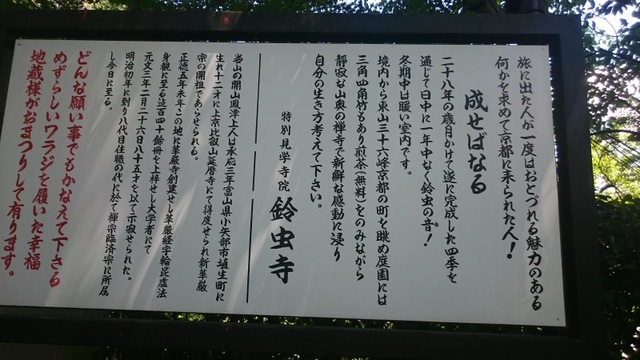 旅に出た人が一度はおとづれる魅力のある
何かを求めて京都に来られた人！
成せばなる
二十八年の歳月かけて遂に完成した四季を
通じて一日中に一年中なく鈴虫の音！
冬期中は暖い室内です。
境内から東山三十六峰京都の町を眺め庭園には
三角四角竹もあり煎茶(無料)をのみながら
静寂な山奥の禅寺で新鮮な感動に浸り
自分の生き方考えて下さい。
特別見学寺院 鈴虫寺
当山の開山鳳潭上人は承応三年富山県小矢部市埴生町に
生れ十二才に上京比叡山延暦寺にて得度せられ新華厳
宗の開祖であらせられる。
正徳五年春この地に華厳寺創建せし華厳経等輪毘虚法
身観に至る迄百四十餘冊を上梓せし大学者にて
元文三年二月二十六日八十五才を以て示寂せられた。
明治初年に到り八代目住職の代に於て禅宗臨済宗に所属
し今日に至る。
どんな願い事でもかなえて下さる
めずらしいワラジを履いた幸福
地蔵様がおまつりして有ります。